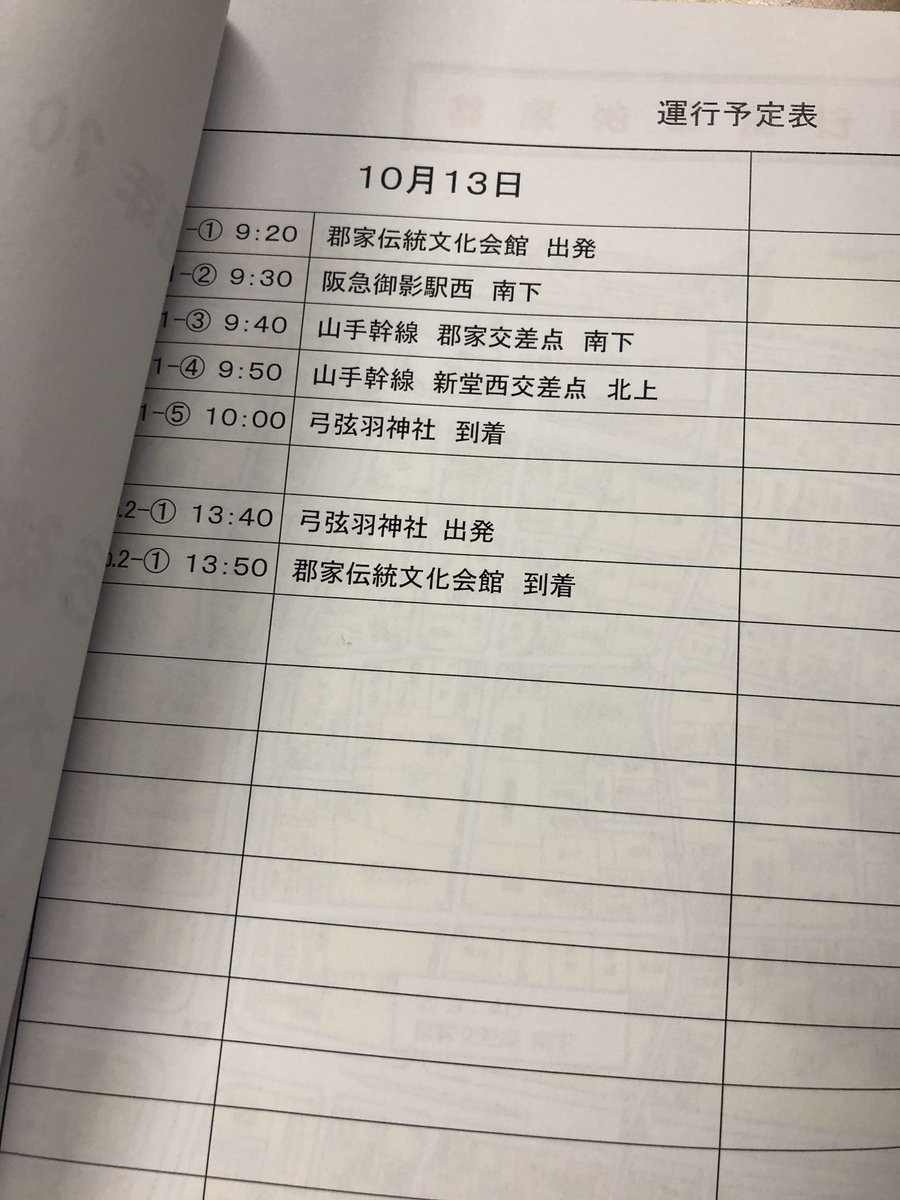 運行予定表
10月13日
-① 9:20 郡家伝統文化会館 出発
1-② 9:30 阪急御影駅西 南下
1-③ 9:40 山手幹線 郡家交差点 南下
1-④ 9:50 山手幹線 新堂西交差点 北上
1-⑤ 10:00 弓弦羽神社 到着
.2-① 13:40 弓弦羽神社 出発
.2-① 13:50 郡家伝統文化会館 到着